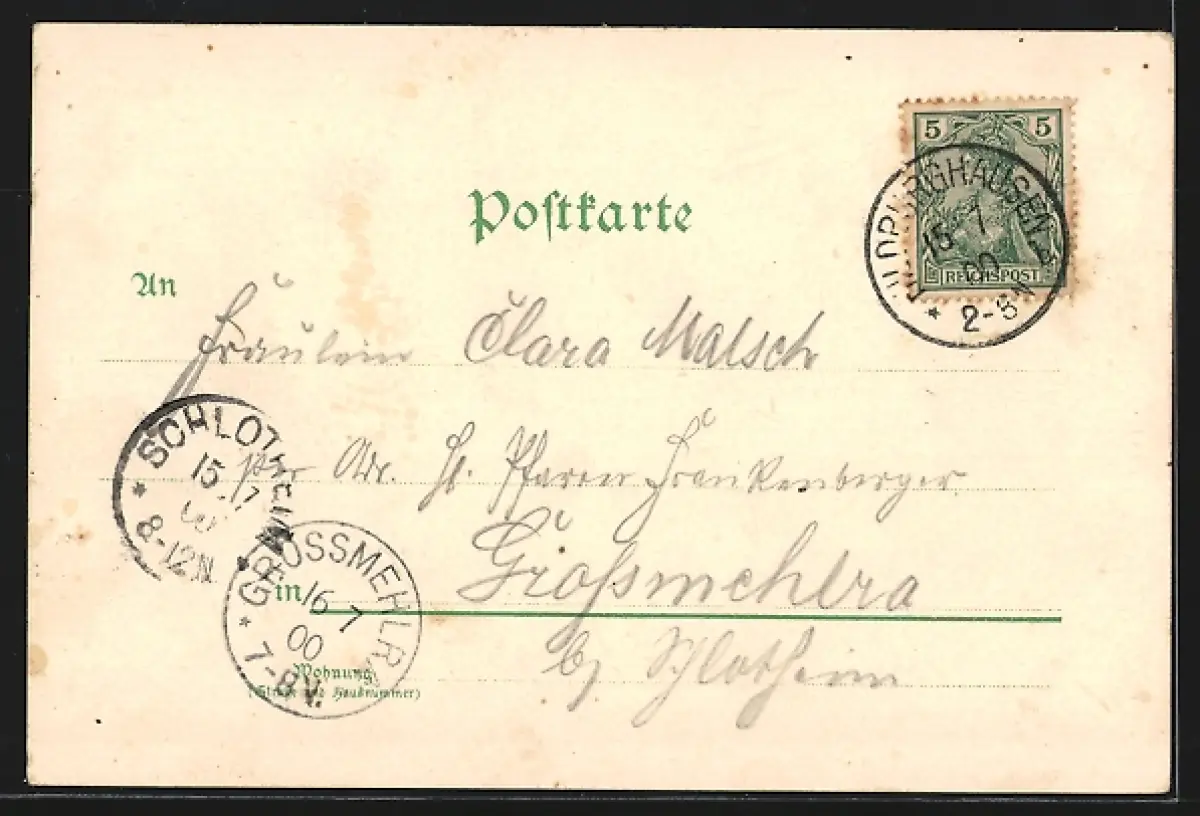 Postkarte
5 5
REICHSPOST
HILDBURGHAUSEN
15 7
00
* 2-8N
An
Fräulein Clara Malsch
SCHLOTHEIM
15 7
00
* 8-12N
per Adr. H. Pfarrer Frankenberger
GROSSMEHLRA
16 7
00
* 7-8V.
in Großmehlra
b/ Schlotheim
Wohnung
(Straße und Hausnummer)